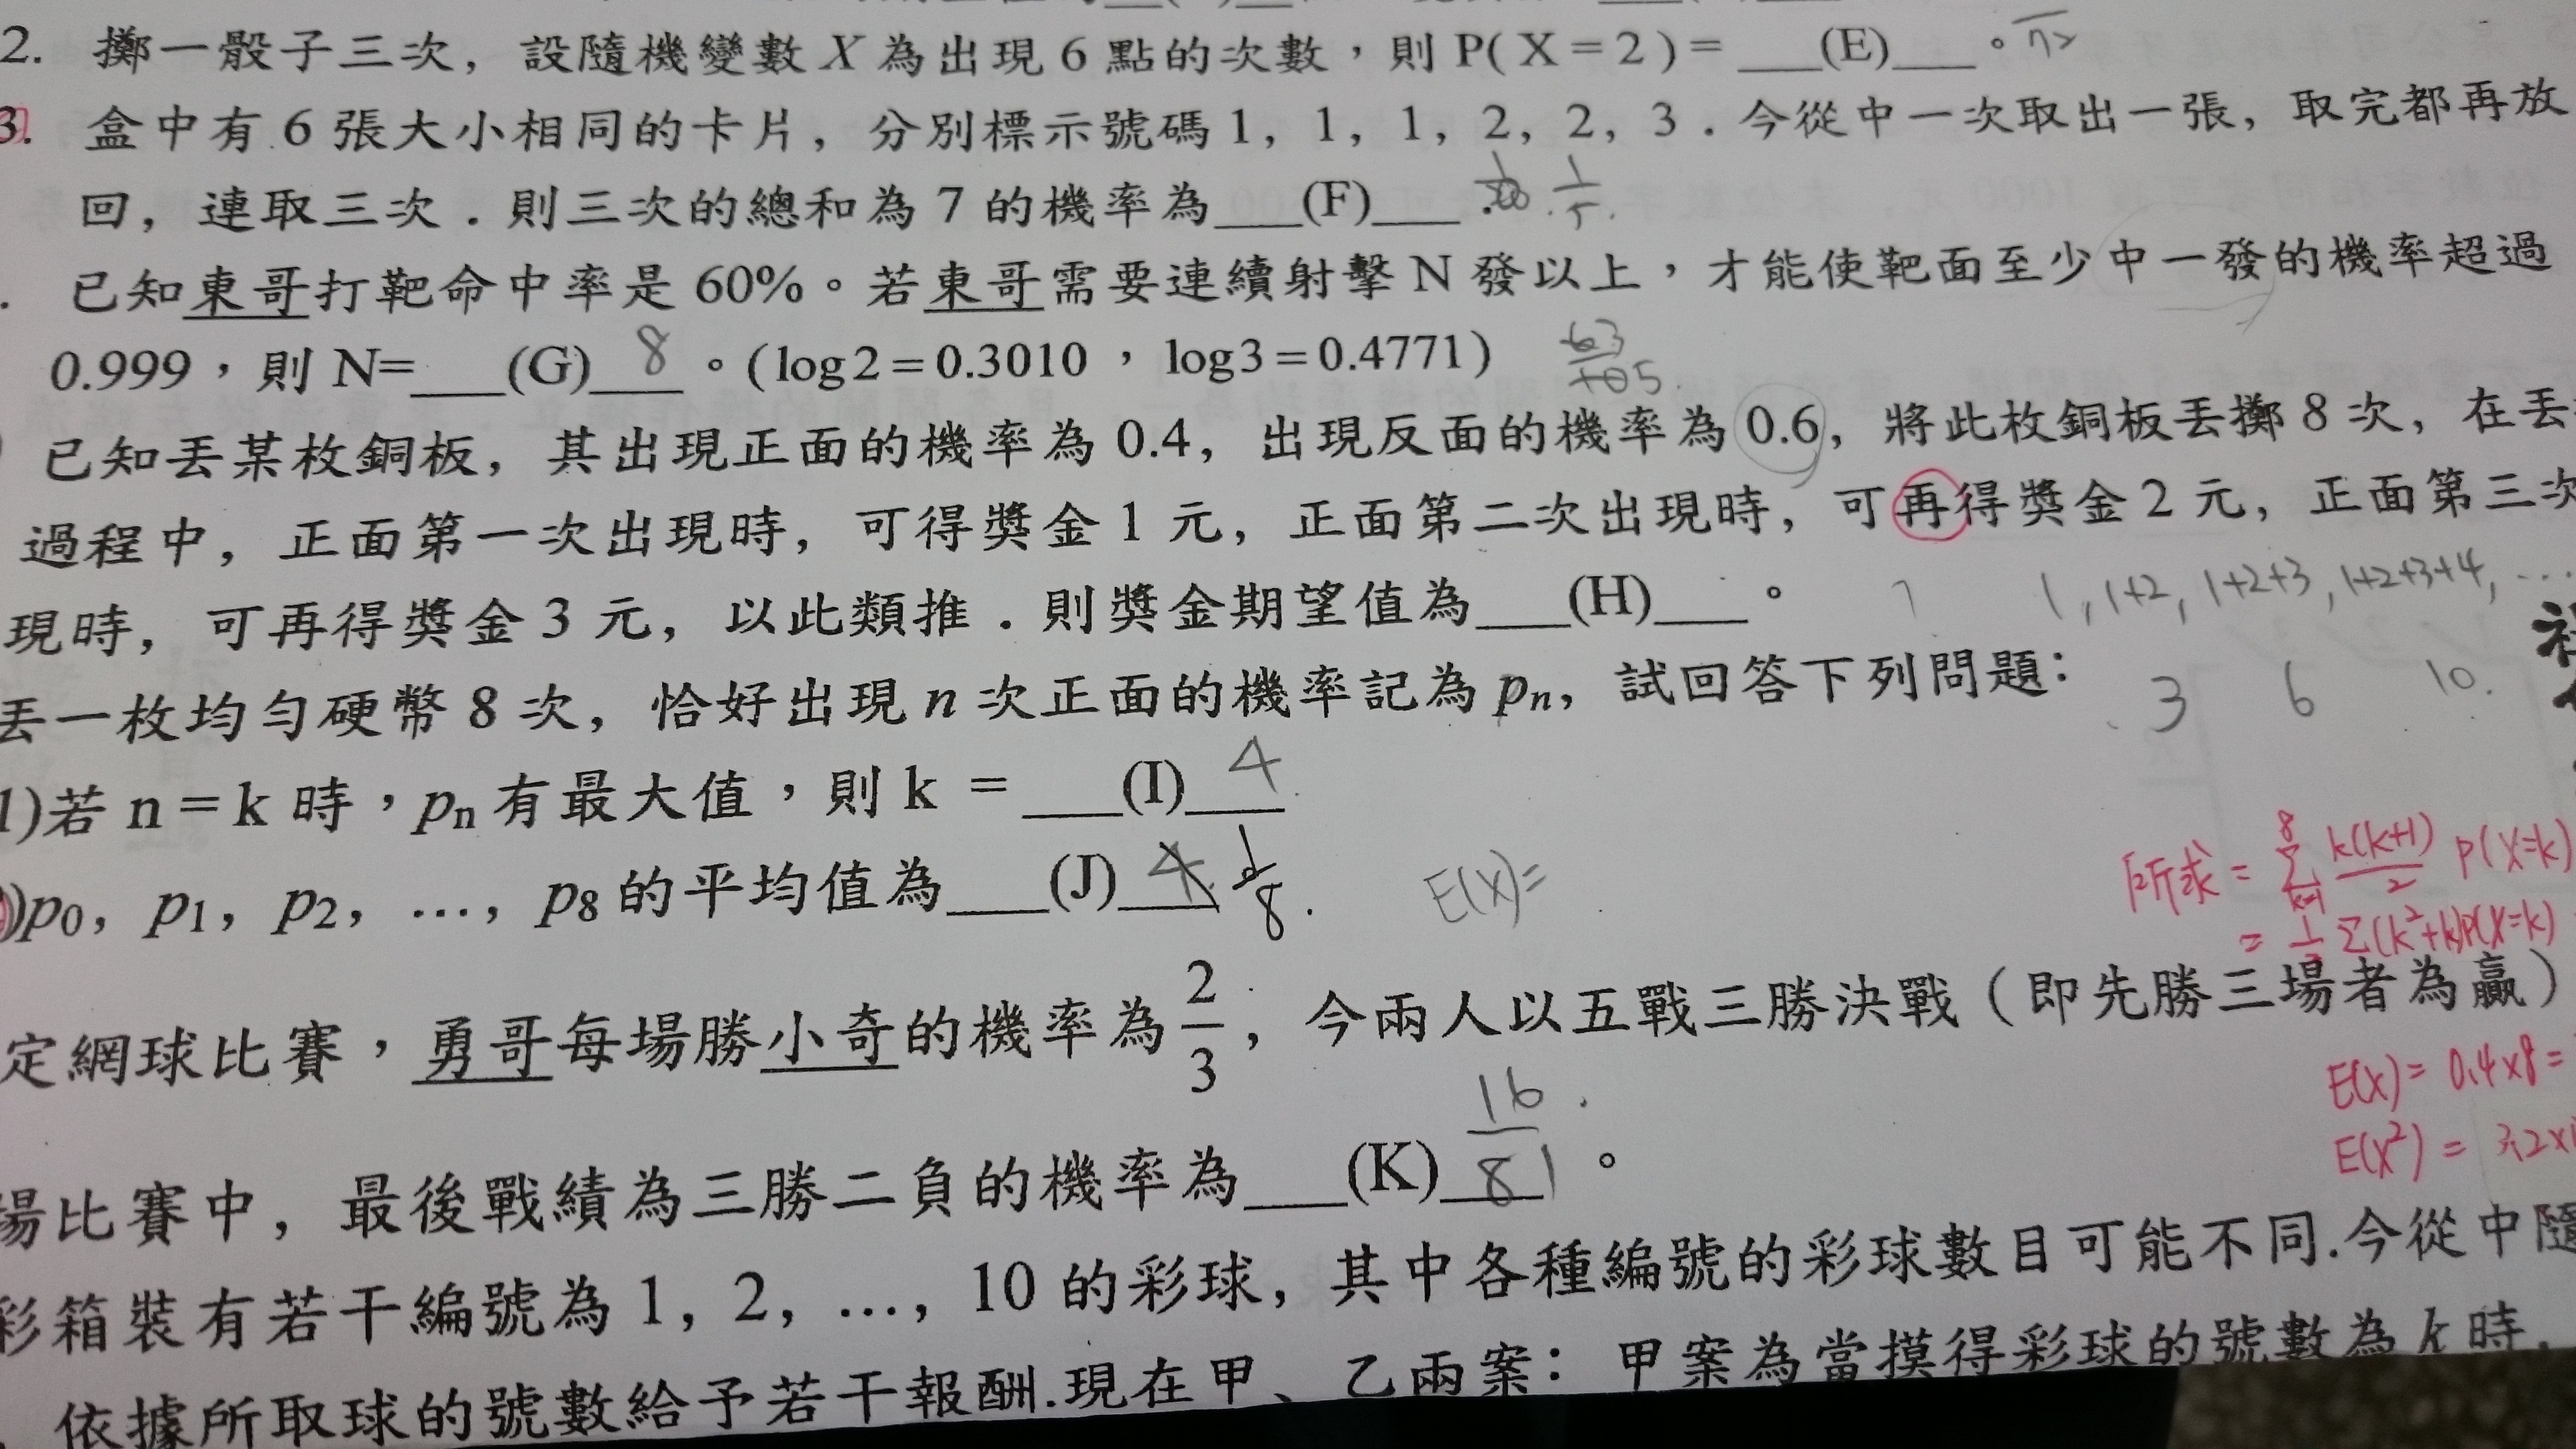 2. 擲一骰子三次，設隨機變數 X 為出現 6 點的次數，則 P( X = 2 ) = ___(E)___。
3. 盒中有 6 張大小相同的卡片，分別標示號碼 1, 1, 1, 2, 2, 3．今從中一次取出一張，取完都再放
回，連取三次．則三次的總和為 7 的機率為___(F)___．
已知東哥打靶命中率是 60%。若東哥需要連續射擊 N 發以上，才能使靶面至少中一發的機率超過
0.999，則 N=___(G)___ 8 。(log2 = 0.3010 ， log3 = 0.4771)
已知丟某枚銅板，其出現正面的機率為 0.4，出現反面的機率為 0.6，將此枚銅板丟擲 8 次，在丟
過程中，正面第一次出現時，可得獎金 1 元，正面第二次出現時，可再得獎金 2 元，正面第三次
現時，可再得獎金 3 元，以此類推．則獎金期望值為___(H)___。
1, 1+2, 1+2+3, 1+2+3+4, ...
3 6 10.
丟一枚均勻硬幣 8 次，恰好出現 n 次正面的機率記為 pn，試回答下列問題：
1)若 n = k 時，pn 有最大值，則 k = ___(I)___ 4
)p0，p1，p2，…，p8 的平均值為___(J)___ 4 1/8.
E(X)=
所求 = Σ k(k+1)/2 P(X=k)
= 1/2 Σ(k²+k)P(X=k)
定網球比賽，勇哥每場勝小奇的機率為 2/3，今兩人以五戰三勝決戰（即先勝三場者為贏）
E(X) = 0.4×8 =
E(X²) = 3.2×
場比賽中，最後戰績為三勝二負的機率為___(K)___ 16/81 。
彩箱裝有若干編號為 1，2，…，10 的彩球，其中各種編號的彩球數目可能不同.今從中隨
依據所取球的號數給予若干報酬.現在甲、乙兩案：甲案為當摸得彩球的號數為 k 時，